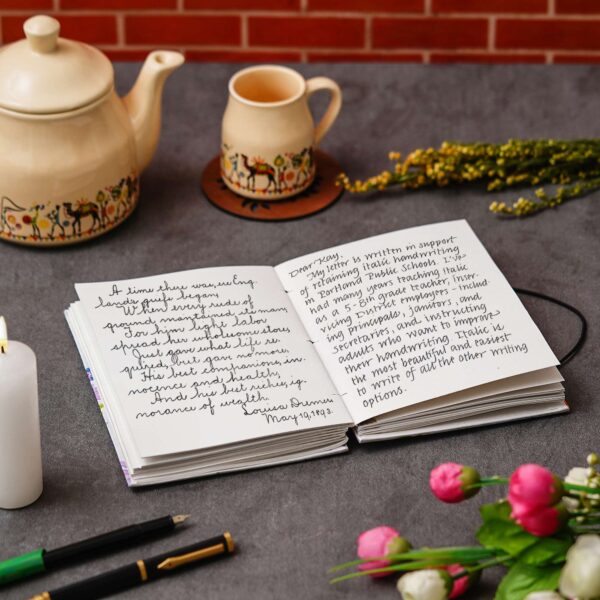 A time there was, ere Eng
lands griefs began,
When every rood of
ground maintained its man;
For him light labor
spread his wholesome store,
Just gave what life re-
quired, but gave no more,
His best companions, in-
nocence and health,
And his best riches, ig-
norance of wealth.
Louisa Diemes
May 19, 1893.
Dear Kay,
My letter is written in support
of retaining italic handwriting
in Portland Public Schools. I've
had many years teaching italic
as a 5-8th grade teacher, inser-
vicing District employees - includ
ing principals, janitors, and
secretaries, and instructing
adults who want to improve
their handwriting. Italic is
the most beautiful and easiest
to write of all the other writing
options.